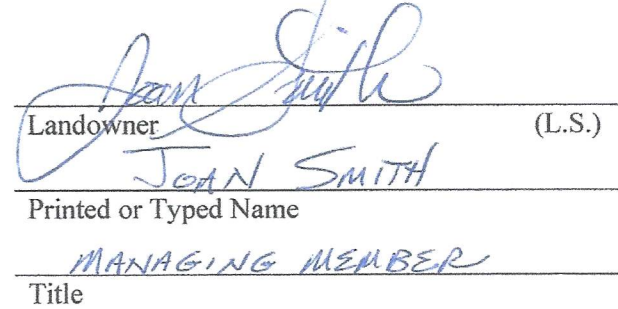 Joan Smith
Landowner (L.S.)
JOAN SMITH
Printed or Typed Name
MANAGING MEMBER
Title